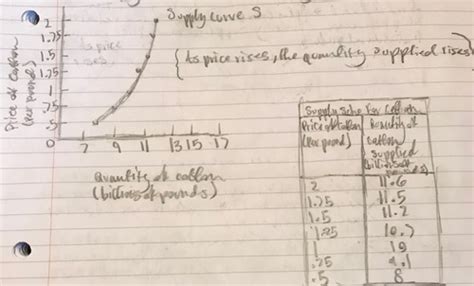 Supply curve S
As price rises, the quantity supplied rises
as price
rises
2
1.75
1.5
1.25
1
.75
.5
0
Price of Cotton
(per pound)
7 9 11 13 15 17
quantity of cotton
(billions of pounds)
Supply Sche For Cotton
Price of Cotton
(per pound)
Quantity of
cotton
supplied
(billions of
pounds)
2 11.6
1.75 11.5
1.5 11.2
1.25 10.7
1 10
.75 9.1
.5 8